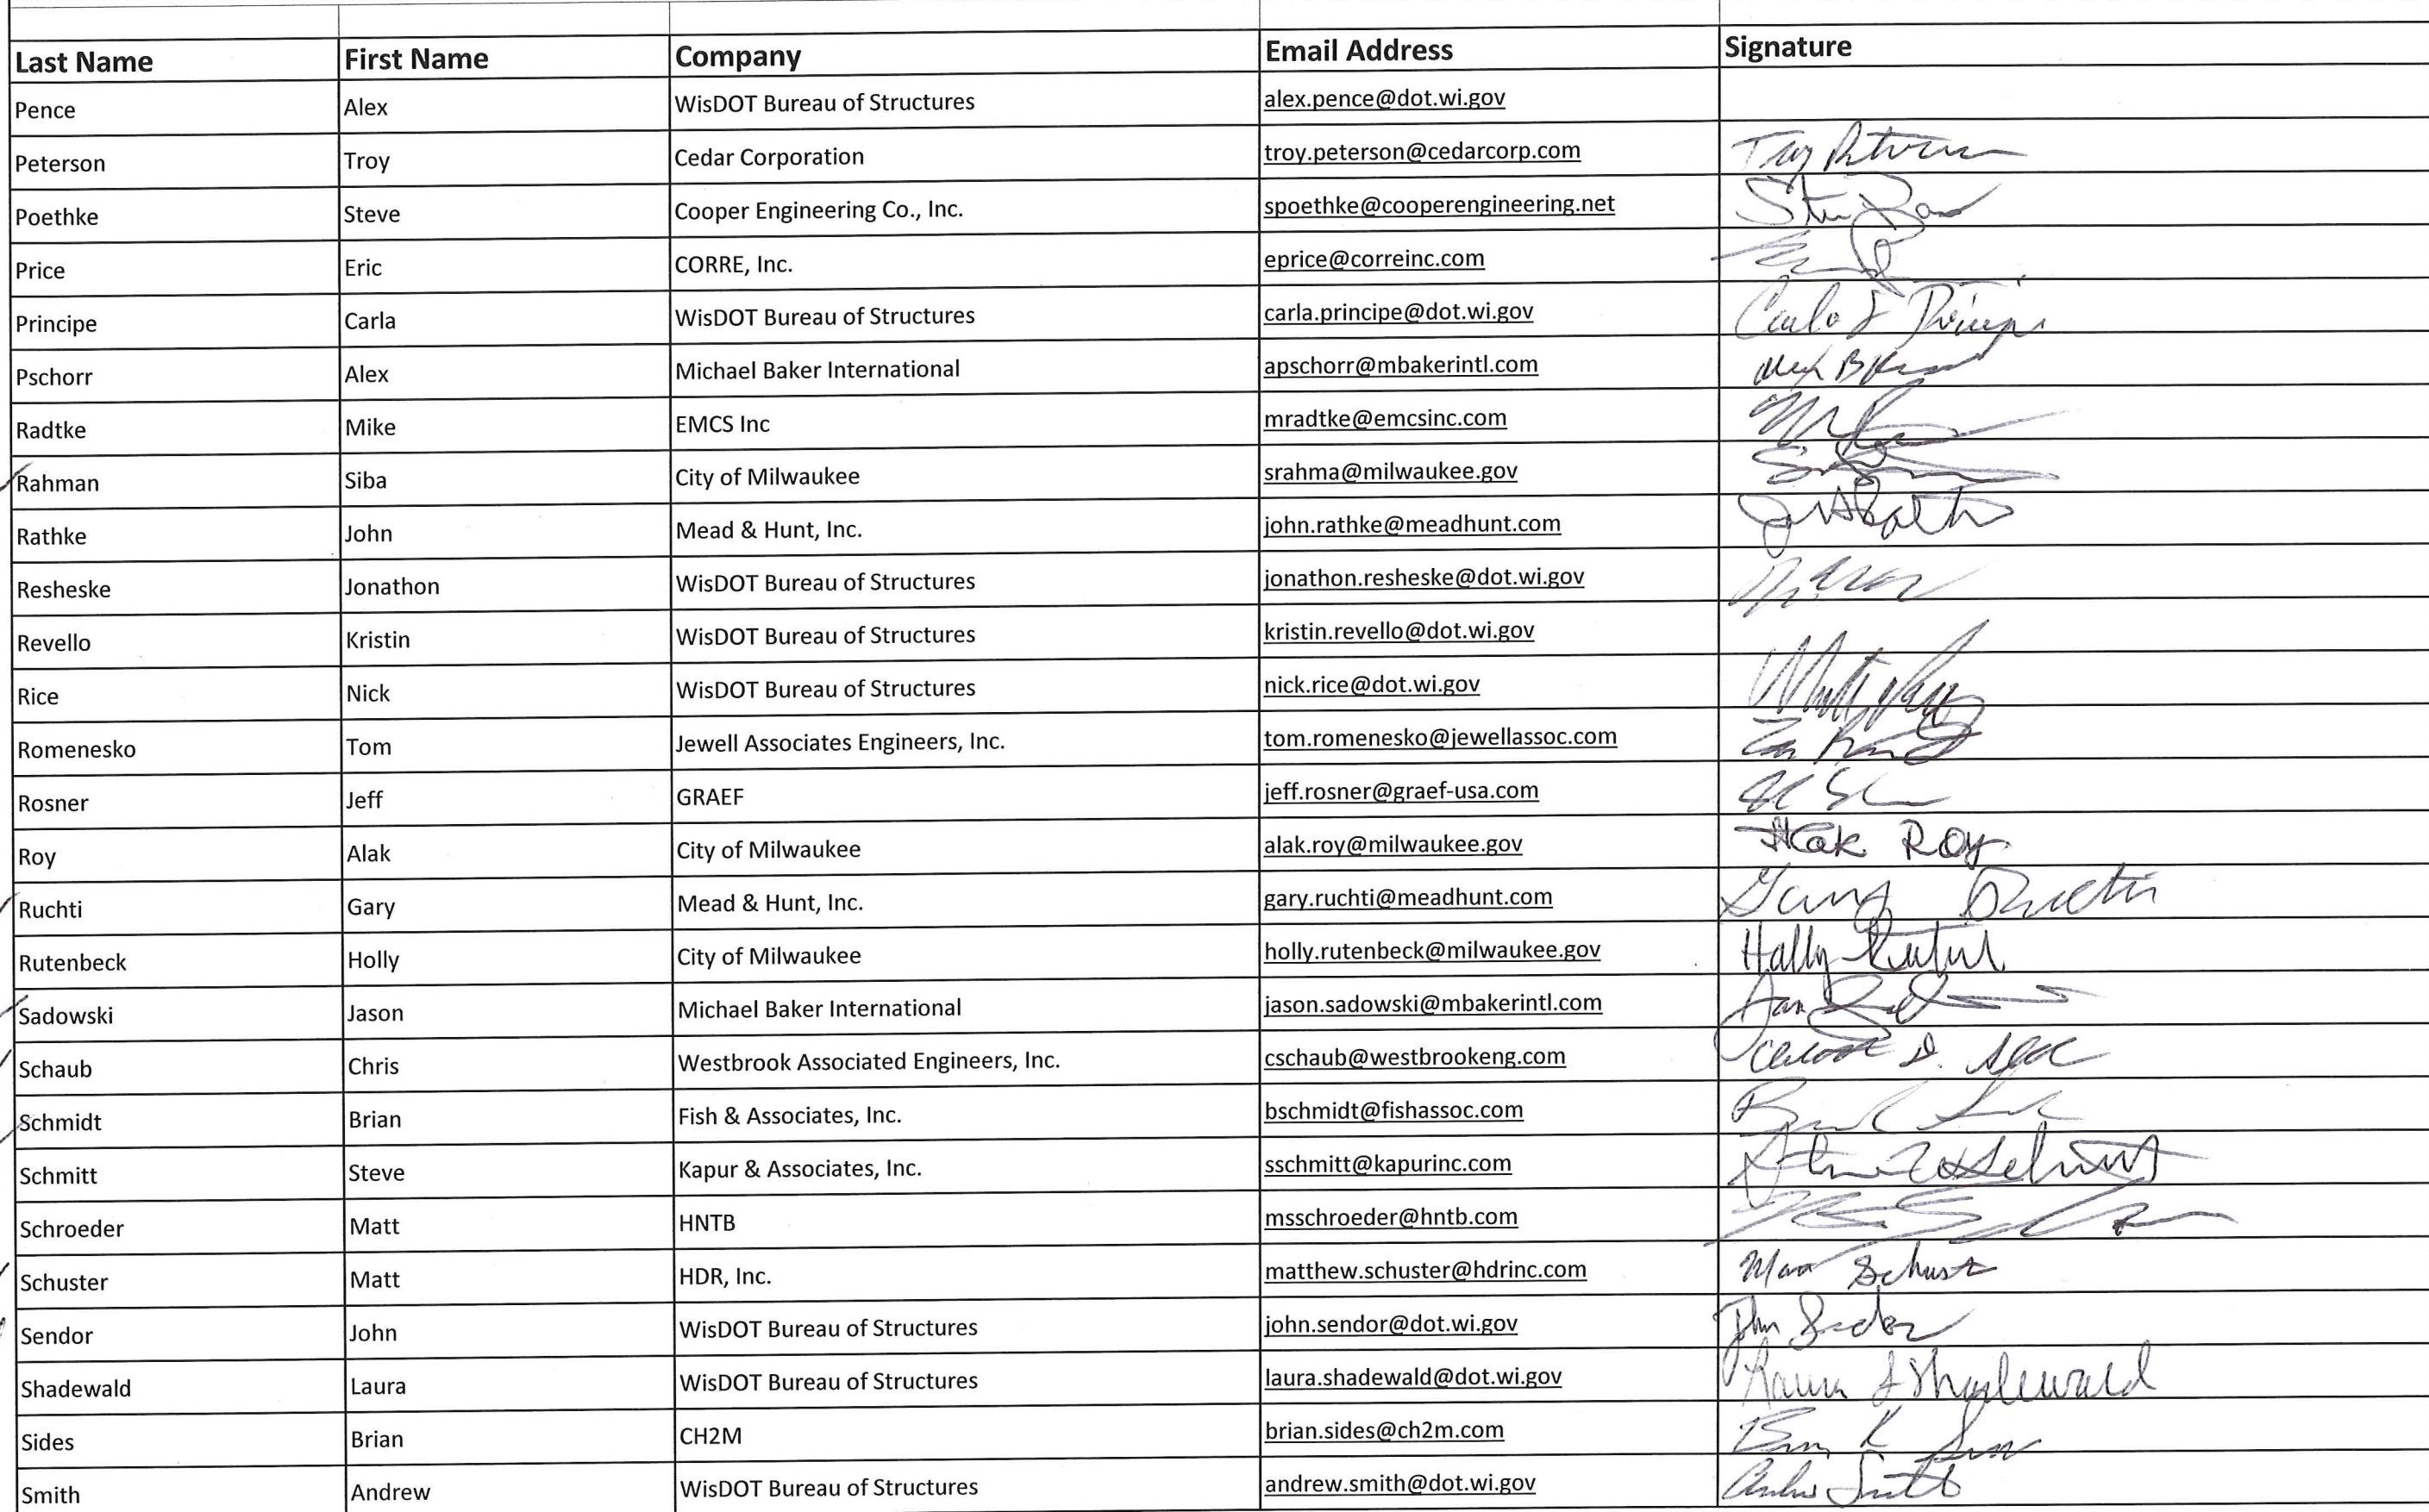 Last Name First Name Company Email Address Signature
Pence Alex WisDOT Bureau of Structures alex.pence@dot.wi.gov
Peterson Troy Cedar Corporation troy.peterson@cedarcorp.com Troy Peterson
Poethke Steve Cooper Engineering Co., Inc. spoethke@cooperengineering.net
Price Eric CORRE, Inc. eprice@correinc.com
Principe Carla WisDOT Bureau of Structures carla.principe@dot.wi.gov
Pschorr Alex Michael Baker International apschorr@mbakerintl.com
Radtke Mike EMCS Inc mradtke@emcsinc.com
Rahman Siba City of Milwaukee srahma@milwaukee.gov
Rathke John Mead & Hunt, Inc. john.rathke@meadhunt.com
Resheske Jonathon WisDOT Bureau of Structures jonathon.resheske@dot.wi.gov
Revello Kristin WisDOT Bureau of Structures kristin.revello@dot.wi.gov
Rice Nick WisDOT Bureau of Structures nick.rice@dot.wi.gov
Romenesko Tom Jewell Associates Engineers, Inc. tom.romenesko@jewellassoc.com
Rosner Jeff GRAEF jeff.rosner@graef-usa.com
Roy Alak City of Milwaukee alak.roy@milwaukee.gov Alak Roy
Ruchti Gary Mead & Hunt, Inc. gary.ruchti@meadhunt.com Gary Ruchti
Rutenbeck Holly City of Milwaukee holly.rutenbeck@milwaukee.gov Holly
Sadowski Jason Michael Baker International jason.sadowski@mbakerintl.com
Schaub Chris Westbrook Associated Engineers, Inc. cschaub@westbrookeng.com
Schmidt Brian Fish & Associates, Inc. bschmidt@fishassoc.com
Schmitt Steve Kapur & Associates, Inc. sschmitt@kapurinc.com
Schroeder Matt HNTB msschroeder@hntb.com
Schuster Matt HDR, Inc. matthew.schuster@hdrinc.com
Sendor John WisDOT Bureau of Structures john.sendor@dot.wi.gov John Sendor
Shadewald Laura WisDOT Bureau of Structures laura.shadewald@dot.wi.gov Laura Shadewald
Sides Brian CH2M brian.sides@ch2m.com
Smith Andrew WisDOT Bureau of Structures andrew.smith@dot.wi.gov Andrew Smith